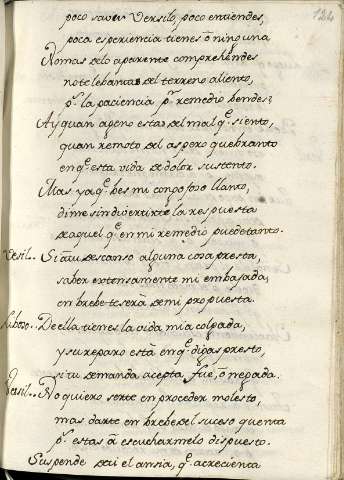 124
poco saver Versilo, poco entiendes,
poca esperiencia tienes o ninguna
No mas de lo aparente comprehendes
no te lebantas del terreno aliento,
pr. la paciencia pr. remedio bendes;
Ay quan ageno estas del mal q. siento,
quan remoto del aspero quebranto
en q. esta vida de dolor sustento.
Mas ya q. bes mi congojoso llanto,
dime sin divertirte la respuesta
de aquel q. en mi remedio puede tanto.
Versil.. Si a tu descanso alguna cosa presta,
saber extensamente mi embajada,
en brebe te será de mi propuesta.
De ella tienes la vida mia colgada,
y su reparo está en q. digas presto,
si tu demanda acepta, fue, ó negada.
Versil.. No quiero serte en proceder molesto,
mas darte en brebe del suceso quenta
pr. estas á escucharmelo dispuesto.
Suspende de ti el ansia, q. acrecienta